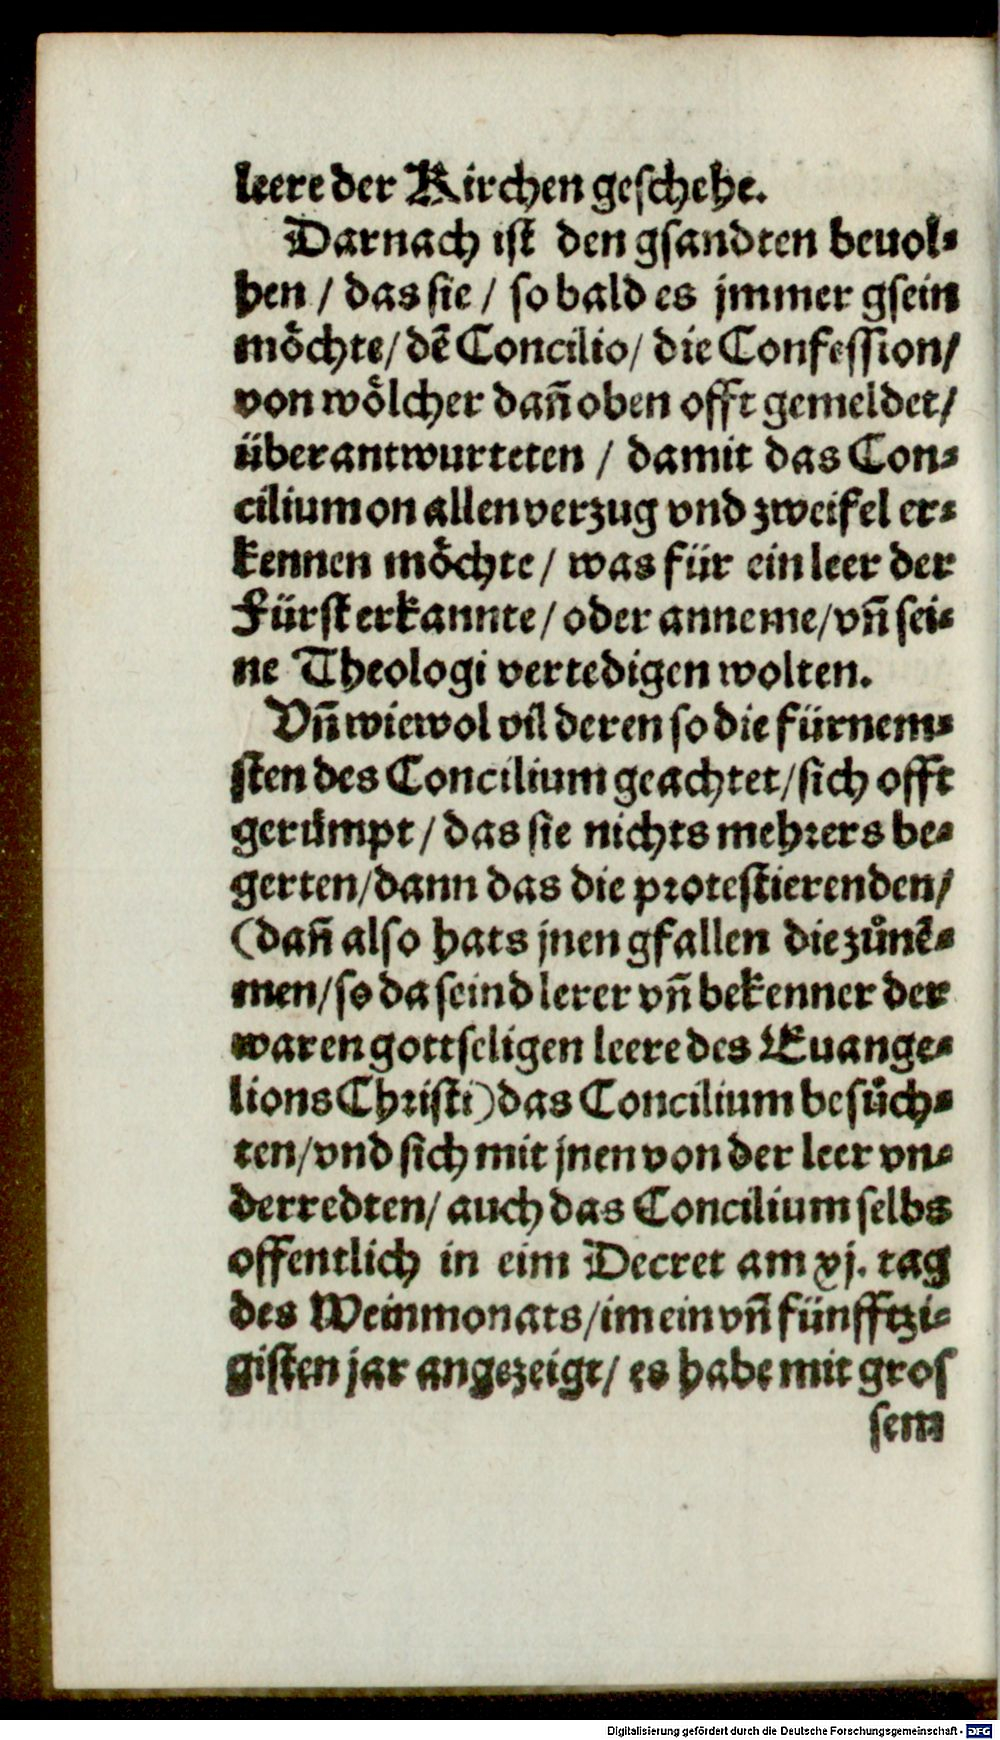 leere der Kirchen geschehe.
Darnach ist den gsandten beuol⸗
hen / das sie / so bald es jmmer gsein
moͤchte/ dē Concilio/ die Confession/
von woͤlcher dañ oben offt gemeldet/
überantwurteten / damit das Con⸗
cilium on allen verzug vnd zweifel er⸗
kennen moͤchte/ was für ein leer der
Fürst erkannte/ oder anneme/ vñ sei⸗
ne Theologi vertedigen wolten.
Vñ wiewol vil deren so die fürnem⸗
sten des Concilium geachtet/ sich offt
geruͤmpt/ das sie nichts mehrers be⸗
gerten/ dann das die protestierenden/
(dañ also hats jnen gfallen die zůnē⸗
men/ so da seind lerer vñ bekenner der
waren gottseligen leere des Euange⸗
lions Christi) das Concilium besuͤch⸗
ten/ vnd sich mit jnen von der leer vn⸗
derredten/ auch das Concilium selbs
offentlich in eim Decret am xj. tag
des Weinmonats/ im ein vñ fünfftzi⸗
gisten jar angezeigt/ es habe mit gros
sem
Digitalisierung gefördert durch die Deutsche Forschungsgemeinschaft - DFG